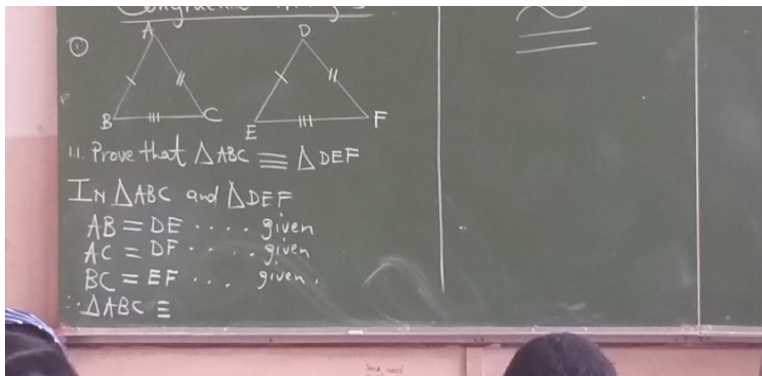 Congruence
①
A
D
B
C
E
F
1.1. Prove that △ABC ≡ △DEF
IN △ABC and △DEF
AB = DE .... given
AC = DF .... given
BC = EF ... given.
∴ △ABC ≡